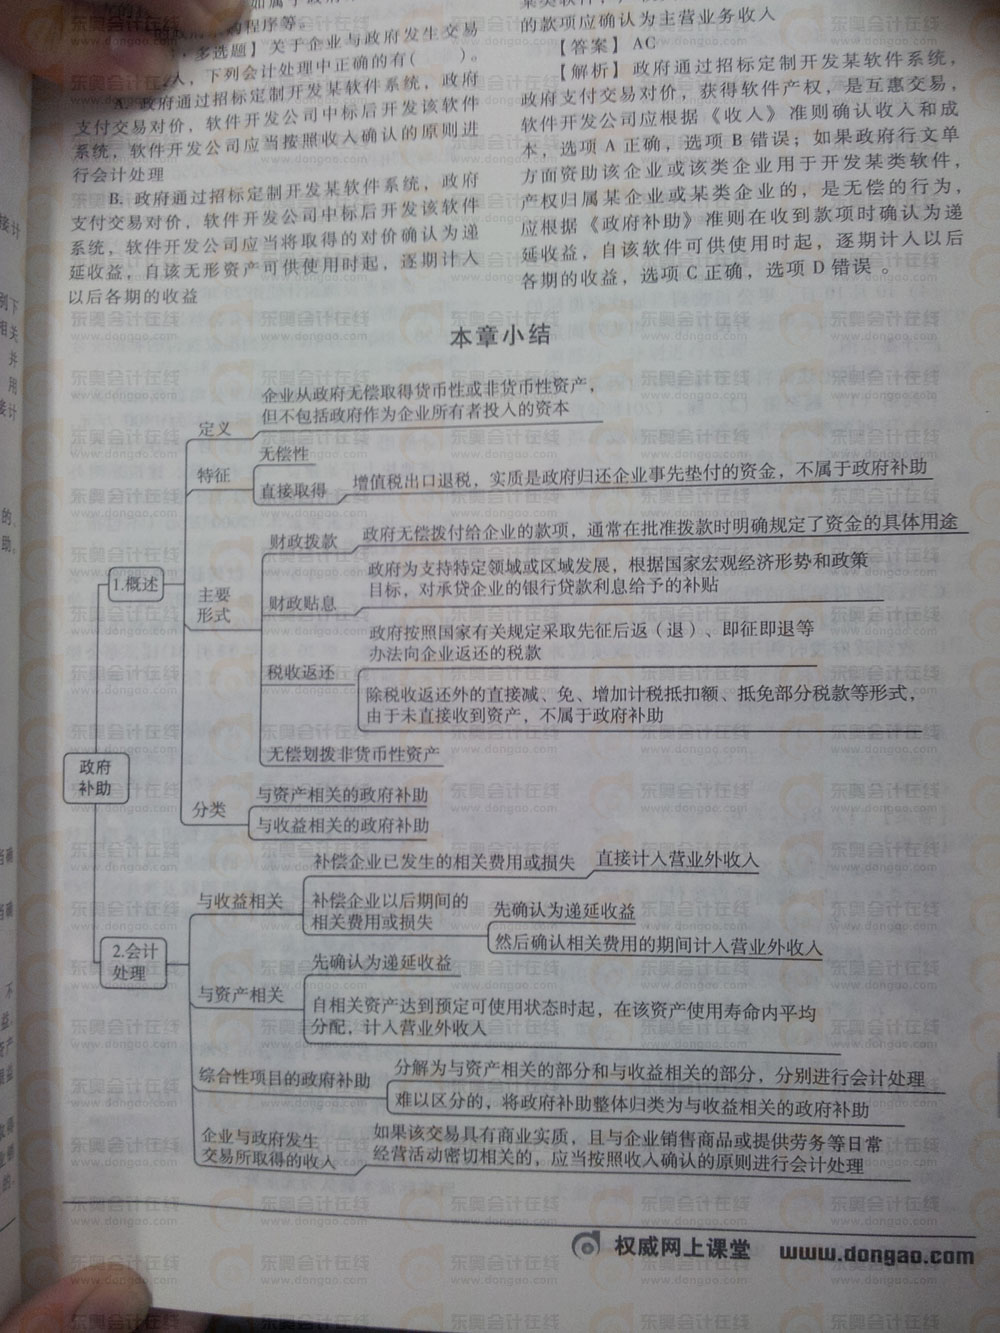 的程序等。
多选题】 关于企业与政府发生交易
人，下列会计处理中正确的有(　　)。
A. 政府通过招标定制开发某软件系统，政府
支付交易对价，软件开发公司中标后开发该软件
系统，软件开发公司应当按照收入确认的原则进
行会计处理
B. 政府通过招标定制开发某软件系统，政府
支付交易对价，软件开发公司中标后开发该软件
系统，软件开发公司应当将取得的对价确认为递
延收益，自该无形资产可供使用时起，逐期计入
以后各期的收益
的款项应确认为主营业务收入
【答案】 AC
【解析】 政府通过招标定制开发某软件系统，
政府支付交易对价，获得软件产权，是互惠交易，
软件开发公司应根据《收入》准则确认收入和成
本，选项 A 正确，选项 B 错误；如果政府行文单
方面资助该企业或该类企业用于开发某类软件，
产权归属某企业或某类企业的，是无偿的行为，
应根据《政府补助》准则在收到款项时确认为递
延收益，自该软件可供使用时起，逐期计入以后
各期的收益，选项 C 正确，选项 D 错误 。
本章小结
政府
补助
1.概述
定义
企业从政府无偿取得货币性或非货币性资产，
但不包括政府作为企业所有者投入的资本
特征
无偿性
直接取得
增值税出口退税，实质是政府归还企业事先垫付的资金，不属于政府补助
主要
形式
财政拨款
政府无偿拨付给企业的款项，通常在批准拨款时明确规定了资金的具体用途
财政贴息
政府为支持特定领域或区域发展，根据国家宏观经济形势和政策
目标，对承贷企业的银行贷款利息给予的补贴
税收返还
政府按照国家有关规定采取先征后返（退）、即征即退等
办法向企业返还的税款
除税收返还外的直接减、免、增加计税抵扣额、抵免部分税款等形式，
由于未直接收到资产，不属于政府补助
无偿划拨非货币性资产
分类
与资产相关的政府补助
与收益相关的政府补助
2.会计
处理
与收益相关
补偿企业已发生的相关费用或损失
直接计入营业外收入
补偿企业以后期间的
相关费用或损失
先确认为递延收益
然后确认相关费用的期间计入营业外收入
与资产相关
先确认为递延收益
自相关资产达到预定可使用状态时起，在该资产使用寿命内平均
分配，计入营业外收入
综合性项目的政府补助
分解为与资产相关的部分和与收益相关的部分，分别进行会计处理
难以区分的，将政府补助整体归类为与收益相关的政府补助
企业与政府发生
交易所取得的收入
如果该交易具有商业实质，且与企业销售商品或提供劳务等日常
经营活动密切相关的，应当按照收入确认的原则进行会计处理
权威网上课堂 www.dongao.com
东奥会计在线
www.dongao.com